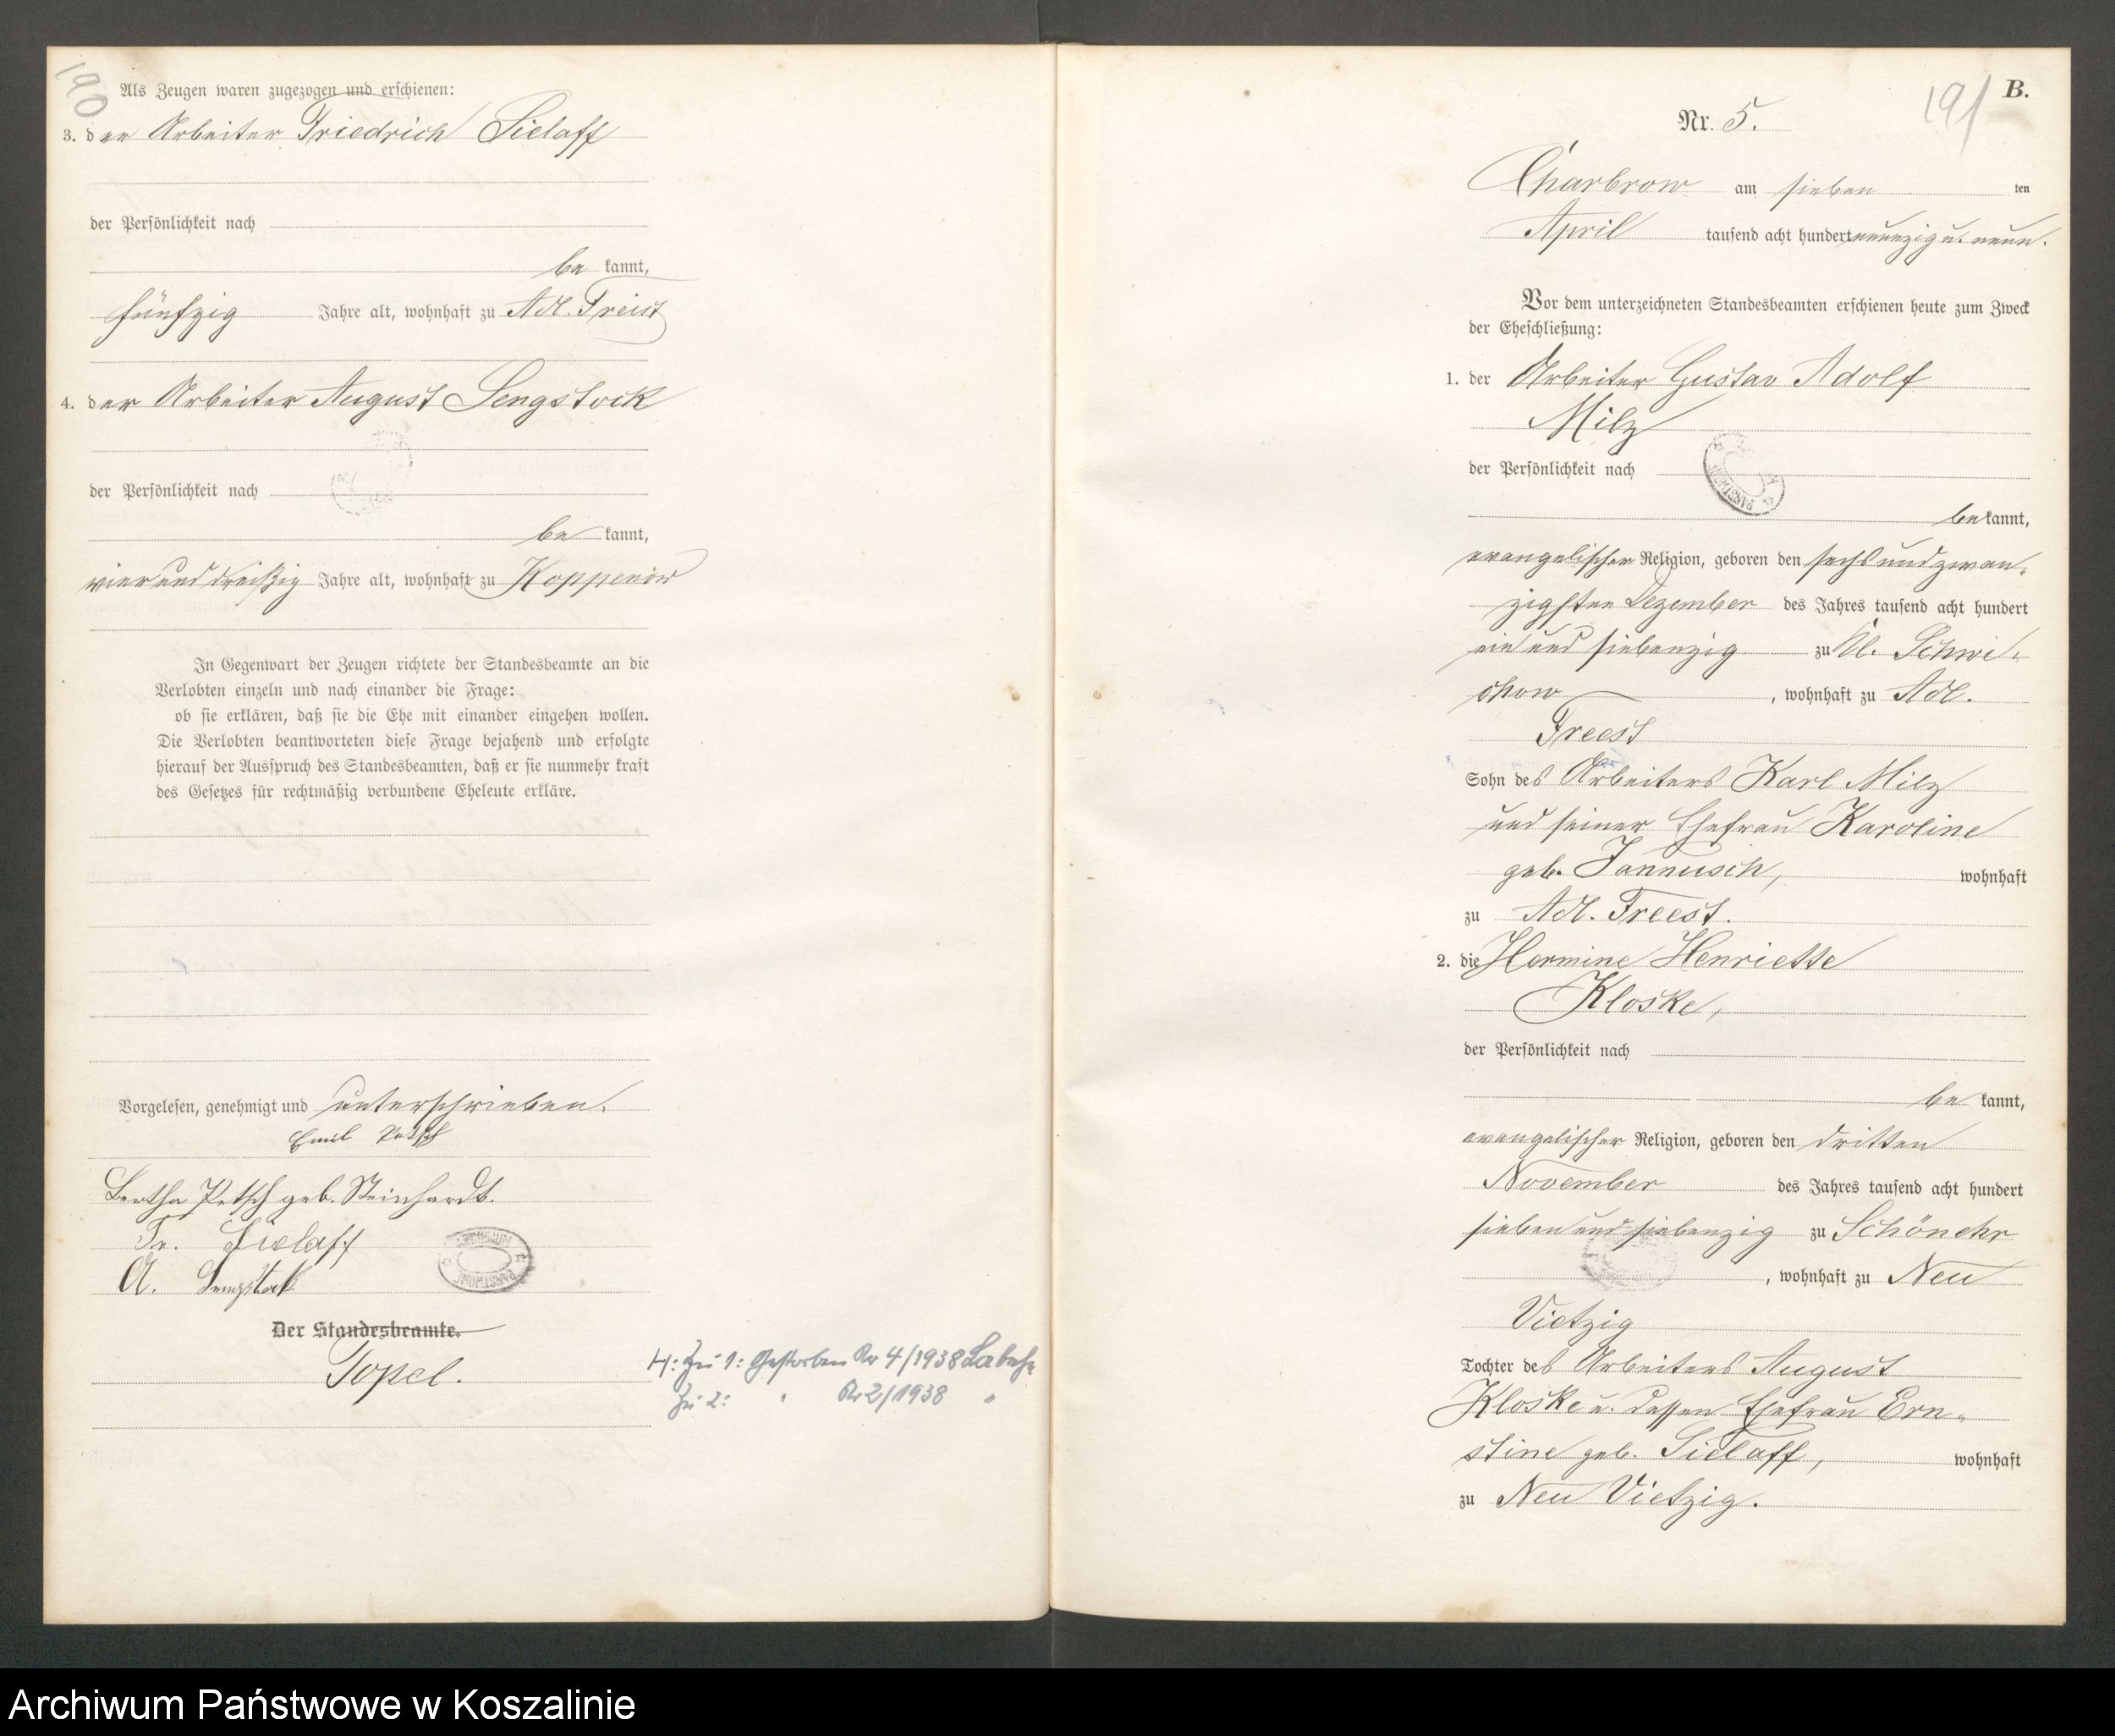 190
Als Zeugen waren zugezogen und erschienen:
3. der Arbeiter Friedrich Sielaff
der Persönlichkeit nach
be kannt,
fünfzig Jahre alt, wohnhaft zu Adl. Freist
4. der Arbeiter August Sengstock
der Persönlichkeit nach
be kannt,
vier und dreißig Jahre alt, wohnhaft zu Koppenow
In Gegenwart der Zeugen richtete der Standesbeamte an die
Verlobten einzeln und nach einander die Frage:
ob sie erklären, daß sie die Ehe mit einander eingehen wollen.
Die Verlobten beantworteten diese Frage bejahend und erfolgte
hierauf der Ausspruch des Standesbeamten, daß er sie nunmehr kraft
des Gesetzes für rechtmäßig verbundene Eheleute erkläre.
Vorgelesen, genehmigt und unterschrieben.
Emil Petsch
Bertha Petsch geb. Steinhardt.
Fr. Sielaff
A. Sengstock
Der Standesbeamte.
Topel.
H: Zu 1: Gestorben Nr 4/1938 Labehn
Zu 2: " Nr 2/1938 "
191
B.
Nr. 5.
Charbrow am sieben ten
April tausend acht hundert neunzig u. neun.
Vor dem unterzeichneten Standesbeamten erschienen heute zum Zweck
der Eheschließung:
1. der Arbeiter Gustav Adolf
Milz
der Persönlichkeit nach
be kannt,
evangelischer Religion, geboren den sechs und zwan-
zigsten Dezember des Jahres tausend acht hundert
ein und siebenzig zu Kl. Schwi-
chow, wohnhaft zu Adl.
Freest
Sohn des Arbeiters Karl Milz
und seiner Ehefrau Karoline
geb. Jannusch, wohnhaft
zu Adl. Freest.
2. die Hermine Henriette
Kloske,
der Persönlichkeit nach
be kannt,
evangelischer Religion, geboren den dritten
November des Jahres tausend acht hundert
sieben und siebenzig zu Schönehr
, wohnhaft zu Neu
Vietzig
Tochter des Arbeiters August
Kloske u. dessen Ehefrau Ern-
stine geb. Sielaff, wohnhaft
zu Neu Vietzig.
Archiwum Państwowe w Koszalinie